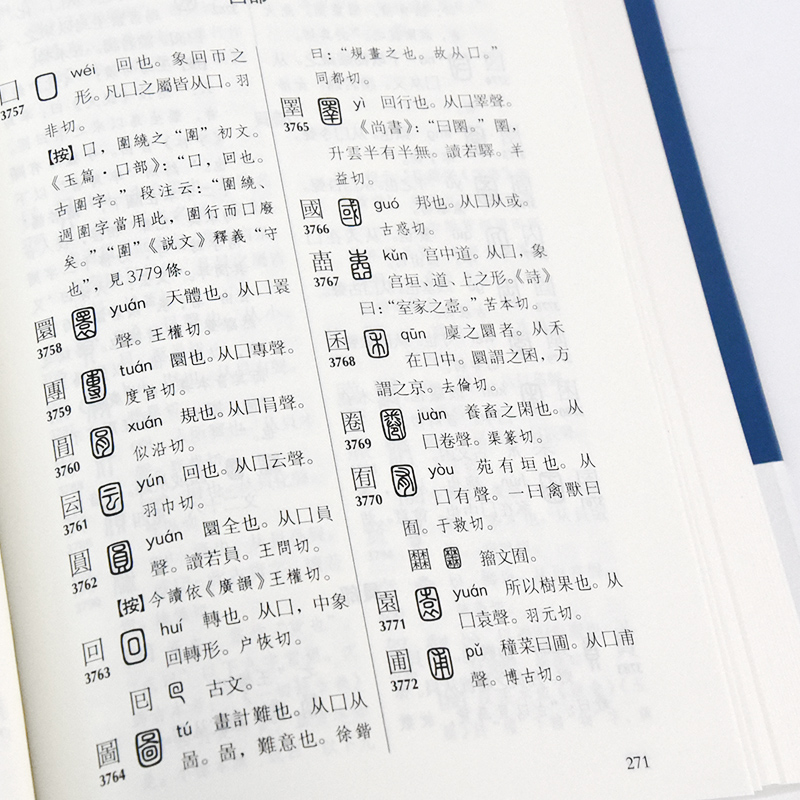 囗 wéi 回也。象回帀之
3757
形。凡囗之屬皆从囗。羽
非切。
【按】囗,圍繞之“圍”初文。
《玉篇·囗部》:“囗,回也。
古圍字。”段注云:“圍繞、
週圍字當用此,圍行而囗廢
矣。”“圍”《説文》釋義“守
也”,見3779條。
圜 yuán 天體也。从囗瞏
3758
聲。王權切。
團 tuán 圜也。从囗專聲。
3759
度官切。
圓 xuán 規也。从囗肙聲。
3760
似沿切。
囩 yún 回也。从囗云聲。
3761
羽巾切。
圓 yuán 圜全也。从囗員
3762
聲。讀若員。王問切。
【按】今讀依《廣韻》王權切。
回 huí 轉也。从囗,中象
3763
回轉形。户恢切。
古文。
圖 tú 畫計難也。从囗从
3764
啚。啚,難意也。徐鍇
曰:“規畫之也。故从囗。”
同都切。
圛 yì 回行也。从囗睪聲。
3765
《尚書》:“曰圛。”圛,
升雲半有半無。讀若驛。羊
益切。
國 guó 邦也。从囗从或。
3766
古惑切。
壼 kǔn 宫中道。从囗,象
3767
宫垣、道、上之形。《詩》
曰:“室家之壼。”苦本切。
囷 qūn 廩之圜者。从禾
3768
在囗中。圜謂之囷,方
謂之京。去倫切。
圈 juàn 養畜之閑也。从
3769
囗卷聲。渠篆切。
囿 yòu 苑有垣也。从
3770
囗有聲。一曰禽獸曰
囿。于救切。
籀文囿。
園 yuán 所以樹果也。从
3771
囗袁聲。羽元切。
圃 pǔ 種菜曰圃。从囗甫
3772
聲。博古切。
271